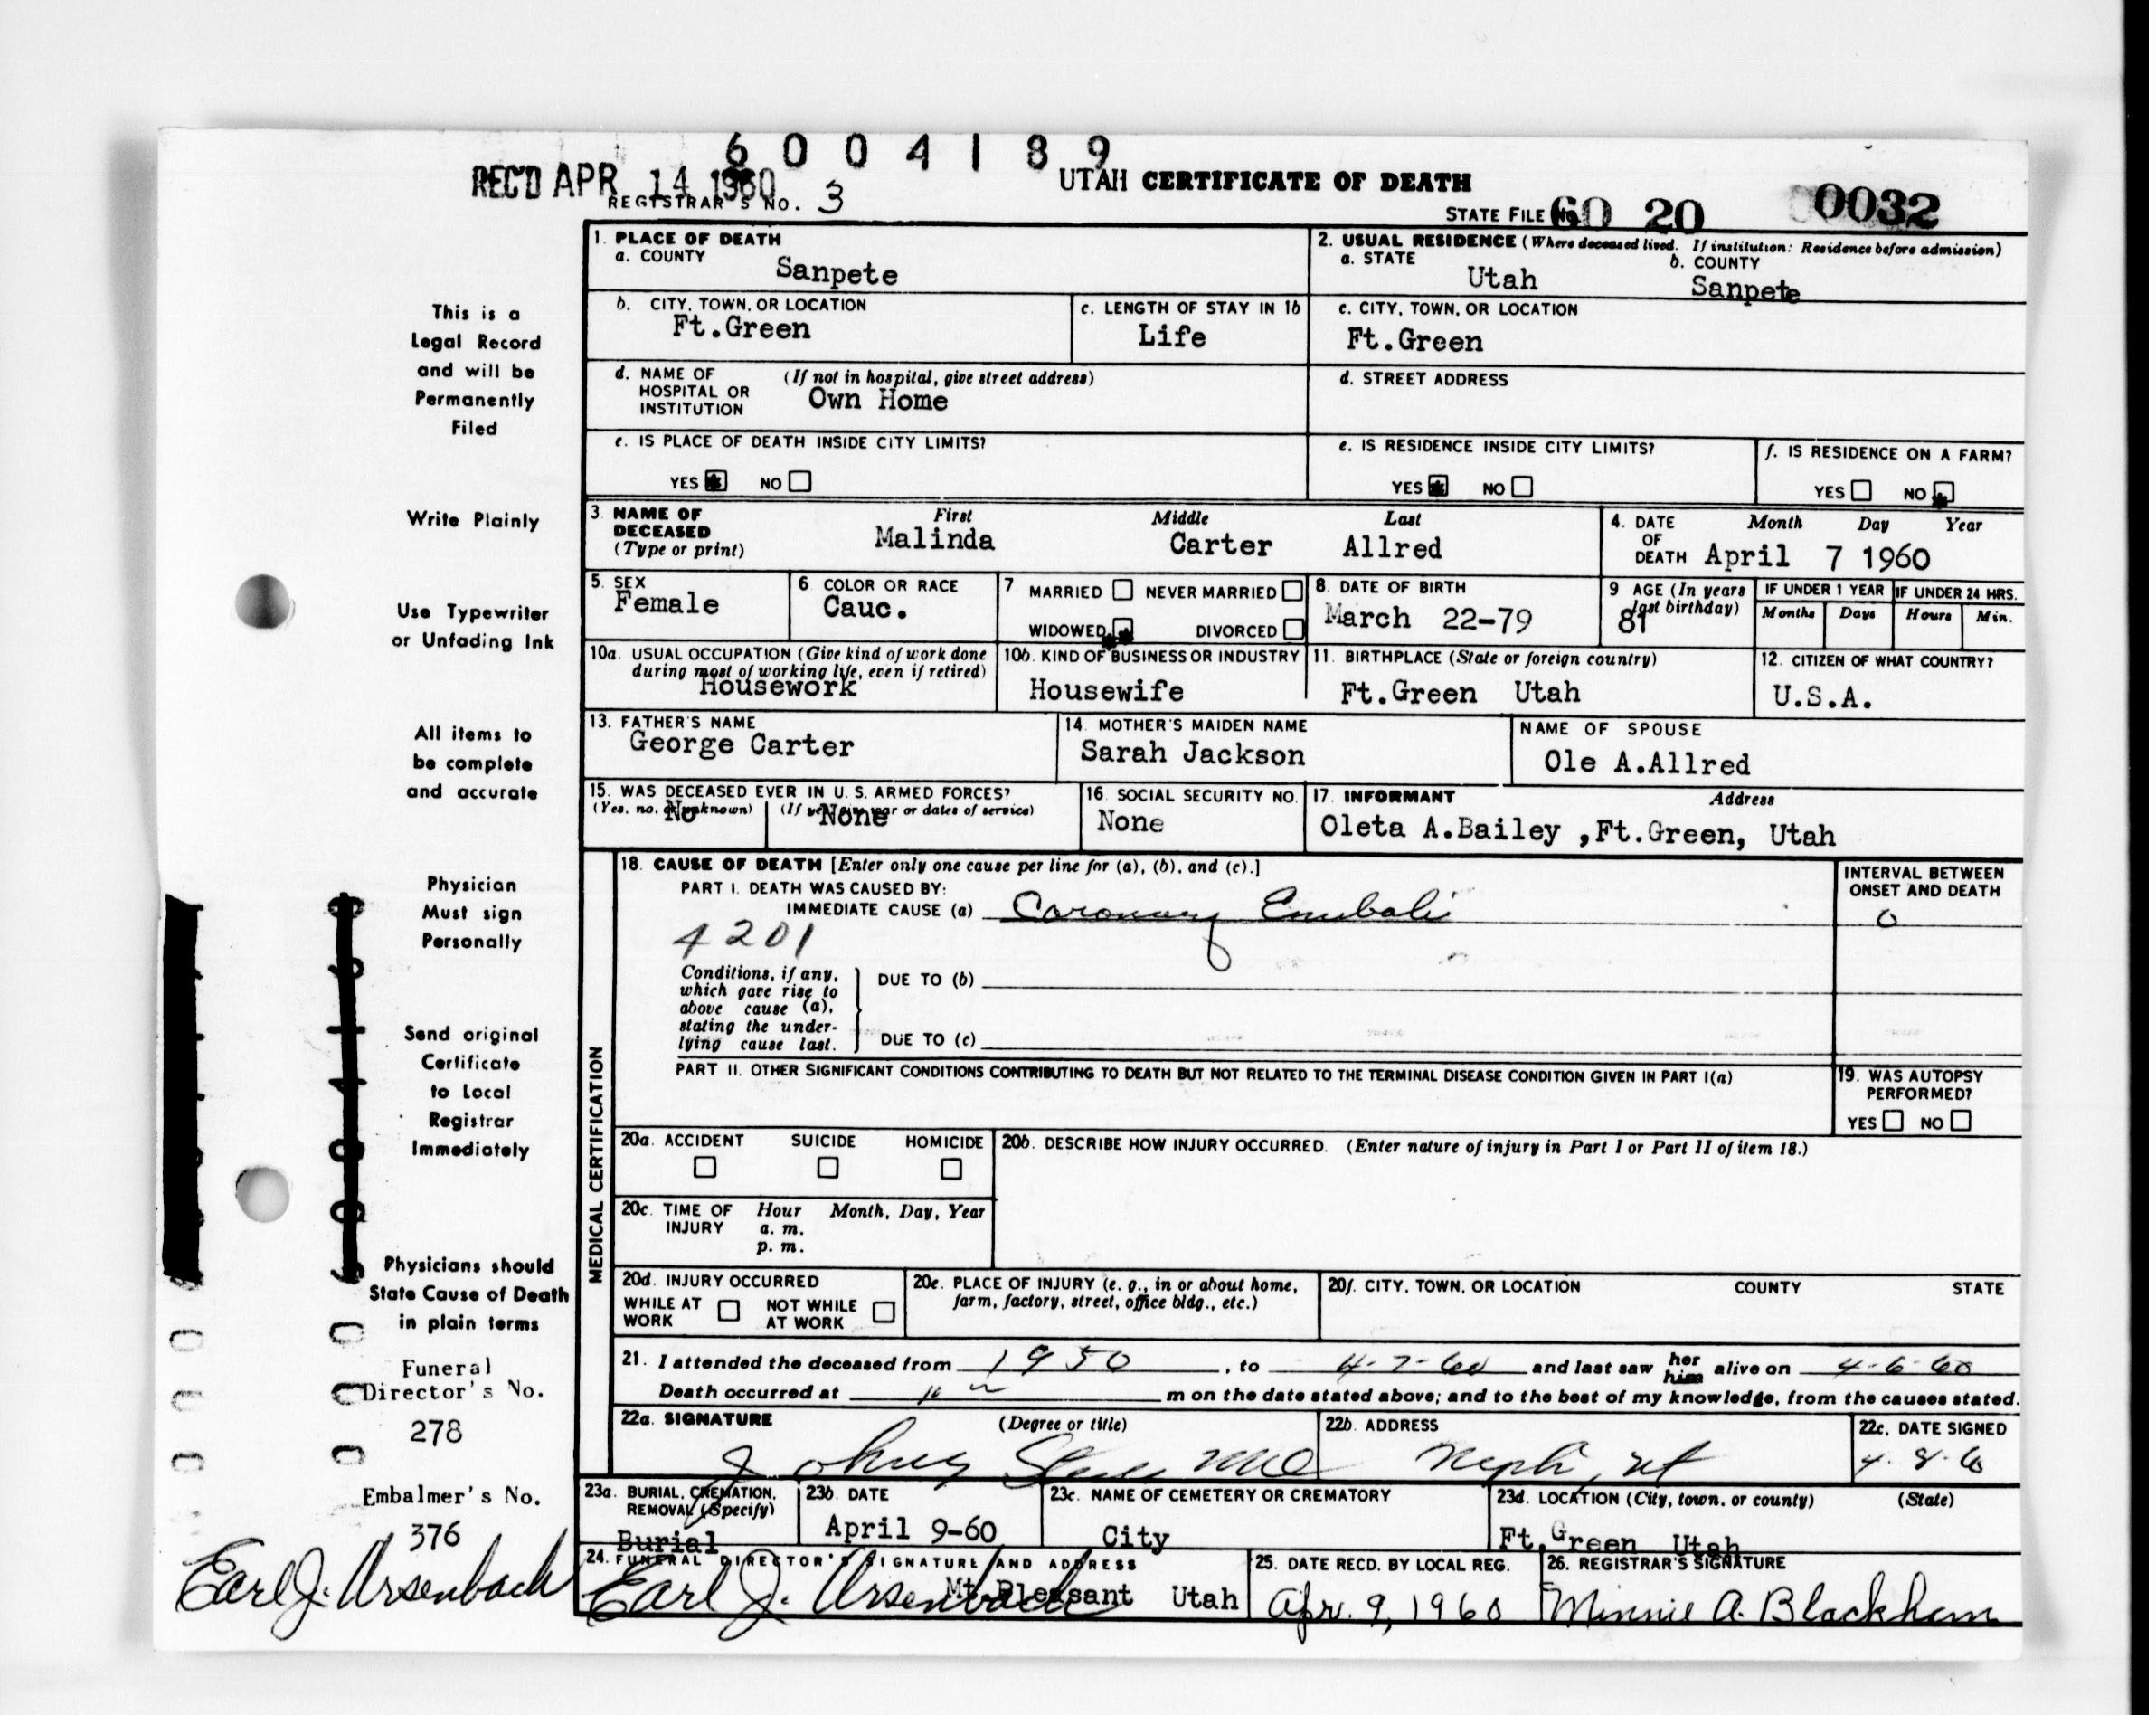 6004189
REC'D APR 14 1960
REGISTRAR'S NO. 3
UTAH CERTIFICATE OF DEATH
STATE FILE NO. 60 20 0032
This is a
Legal Record
and will be
Permanently
Filed
Write Plainly
Use Typewriter
or Unfading Ink
All items to
be complete
and accurate
Physician
Must sign
Personally
Send original
Certificate
to Local
Registrar
Immediately
Physicians should
State Cause of Death
in plain terms
Funeral
Director's No.
278
Embalmer's No.
376
Earl J. Ursenbach
1. PLACE OF DEATH
a. COUNTY Sanpete
2. USUAL RESIDENCE (Where deceased lived. If institution: Residence before admission)
a. STATE Utah b. COUNTY Sanpete
b. CITY, TOWN, OR LOCATION Ft.Green
c. LENGTH OF STAY IN 1b Life
c. CITY, TOWN, OR LOCATION Ft.Green
d. NAME OF HOSPITAL OR INSTITUTION (If not in hospital, give street address) Own Home
d. STREET ADDRESS
e. IS PLACE OF DEATH INSIDE CITY LIMITS?
YES NO
e. IS RESIDENCE INSIDE CITY LIMITS?
YES NO
f. IS RESIDENCE ON A FARM?
YES NO
3. NAME OF DECEASED (Type or print) First Middle Last
Malinda Carter Allred
4. DATE OF DEATH Month Day Year
April 7 1960
5. SEX Female
6. COLOR OR RACE Cauc.
7 MARRIED NEVER MARRIED
WIDOWED DIVORCED
8. DATE OF BIRTH March 22-79
9 AGE (In years last birthday) 81
IF UNDER 1 YEAR Months Days
IF UNDER 24 HRS. Hours Min.
10a. USUAL OCCUPATION (Give kind of work done during most of working life, even if retired) Housework
10b. KIND OF BUSINESS OR INDUSTRY Housewife
11. BIRTHPLACE (State or foreign country) Ft.Green Utah
12. CITIZEN OF WHAT COUNTRY? U.S.A.
13. FATHER'S NAME George Carter
14. MOTHER'S MAIDEN NAME Sarah Jackson
NAME OF SPOUSE Ole A.Allred
15. WAS DECEASED EVER IN U. S. ARMED FORCES?
(Yes, no, or unknown) No (If yes, give war or dates of service) None
16. SOCIAL SECURITY NO. None
17. INFORMANT Address
Oleta A.Bailey ,Ft.Green, Utah
MEDICAL CERTIFICATION
18. CAUSE OF DEATH [Enter only one cause per line for (a), (b), and (c).]
PART I. DEATH WAS CAUSED BY:
IMMEDIATE CAUSE (a) Coronary Emboli
4201
INTERVAL BETWEEN ONSET AND DEATH
0
Conditions, if any, which gave rise to above cause (a), stating the underlying cause last.
DUE TO (b)
DUE TO (c)
PART II. OTHER SIGNIFICANT CONDITIONS CONTRIBUTING TO DEATH BUT NOT RELATED TO THE TERMINAL DISEASE CONDITION GIVEN IN PART I(a)
19. WAS AUTOPSY PERFORMED?
YES NO
20a. ACCIDENT SUICIDE HOMICIDE
20b. DESCRIBE HOW INJURY OCCURRED. (Enter nature of injury in Part I or Part II of item 18.)
20c. TIME OF INJURY Hour Month, Day, Year
a. m.
p. m.
20d. INJURY OCCURRED
WHILE AT WORK NOT WHILE AT WORK
20e. PLACE OF INJURY (e. g., in or about home, farm, factory, street, office bldg., etc.)
20f. CITY, TOWN, OR LOCATION COUNTY STATE
21. I attended the deceased from 1950, to 4-7-60 and last saw her him alive on 4-6-60
Death occurred at m on the date stated above; and to the best of my knowledge, from the causes stated.
22a. SIGNATURE (Degree or title)
22b. ADDRESS Nephi, Ut
22c. DATE SIGNED 4-8-60
23a. BURIAL, CREMATION, REMOVAL (Specify) Burial
23b. DATE April 9-60
23c. NAME OF CEMETERY OR CREMATORY City
23d. LOCATION (City, town, or county) (State)
Ft.Green Utah
24. FUNERAL DIRECTOR'S SIGNATURE AND ADDRESS
Earl J. Ursenbach Mt.Pleasant Utah
25. DATE RECD. BY LOCAL REG. Apr. 9, 1960
26. REGISTRAR'S SIGNATURE Minnie A. Blackham